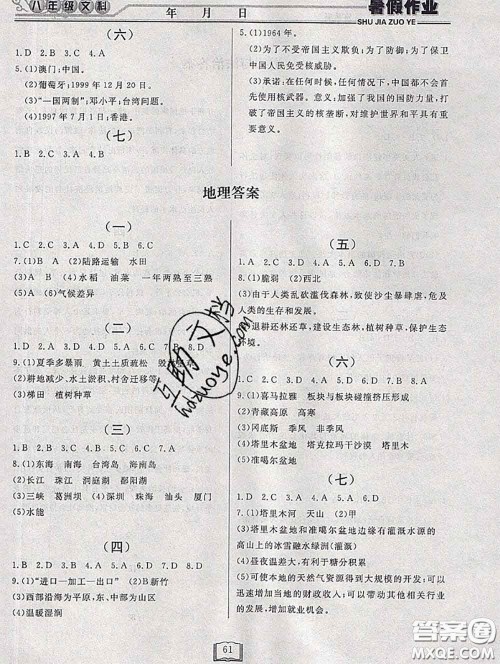 八年级文科
年 月 日
暑假作业
SHU JIA ZUO YE
(六)
1.D 2.C 3.C 4.A
5.(1)澳门;中国。
(2)葡萄牙;1999 年 12 月 20 日。
(3)“一国两制”;邓小平;台湾问题。
(4)1997 年 7 月 1 日;香港。
(七)
1.B 2.C 3.A 4.B
5.(1)1964 年。
(2)为了不受帝国主义欺负;为了防卫;为了保卫
中国人民免受核威胁。
(3)承诺:在任何时候、任何情况下,都不会首先使用核武器。意义:加强了我国的国防力量,打
破了帝国主义的核垄断,对维护世界和平具有重
要意义。
地理答案
(一)
1.C 2.C 3.A 4.D 5.B 6.C
7.(1)A B (2)陆路运输 水田
(3)A B (4)水稻 油菜 一年两熟至三熟
(5)A (6)气候差异
(二)
1.D 2.D 3.C 4.B 5.A 6.B 7.A 8.D
9.(1)夏季多暴雨 黄土土质疏松
(2)耕地减少、水土淤积、村庄迁移等等
(3)梯田 植树种草
(三)
1.D 2.B 3.A 4.B 5.C 6.D 7.A 8.A
9.(1)东海 南海 台湾岛 海南岛
(2)长江 珠江 洞庭湖 鄱阳湖
(3)三峡 葛洲坝 (4)深圳 珠海 汕头 厦门
(5)水能
(四)
1.C 2.A 3.C 4.B 5.D 6.B 7.D 8.D
9.(1)“进口—加工—出口” (2)A B
(3)西部沿海为平原,东、北、南三面环山
(4)温暖湿润
(五)
1.C 2.C 3.A 4.D 5.D 6.D
7.(1)脆弱 (2)西北
(3)由于人类乱砍滥伐森林,致使沙尘暴肆虐,危
及人类的生存和发展。
退耕还林还草,建设生态林,植树种草,保护生态
环境。
(六)
1.C 2.B 3.A 4.D 5.A 6.B 7.C 8.C
9.(1)喜马拉雅 板块与板块碰撞挤压形成
(2)青藏高原 寒
(3)冈底斯 季风 非季风
(4)塔里木盆地 塔克拉玛干沙漠
(5)准噶尔盆地
(七)
1.B 2.B 3.A 4.A 5.D 6.D
7.(1)塔里木河 天山 (2)甲
(3)塔里木盆地和准噶尔盆地边缘有灌溉水源的
高山上的冰雪融水绿洲(灌溉)
(4)昼夜温差大,有利于糖分积累
(5)可以使本地的天然气资源得到大规模的开发;可以
迅速增加当地的财政收入;可以带动其他相关行
业的发展、增加就业机会。
61
互助文档
hdzuoye.com
答案圈
MXQE.COM